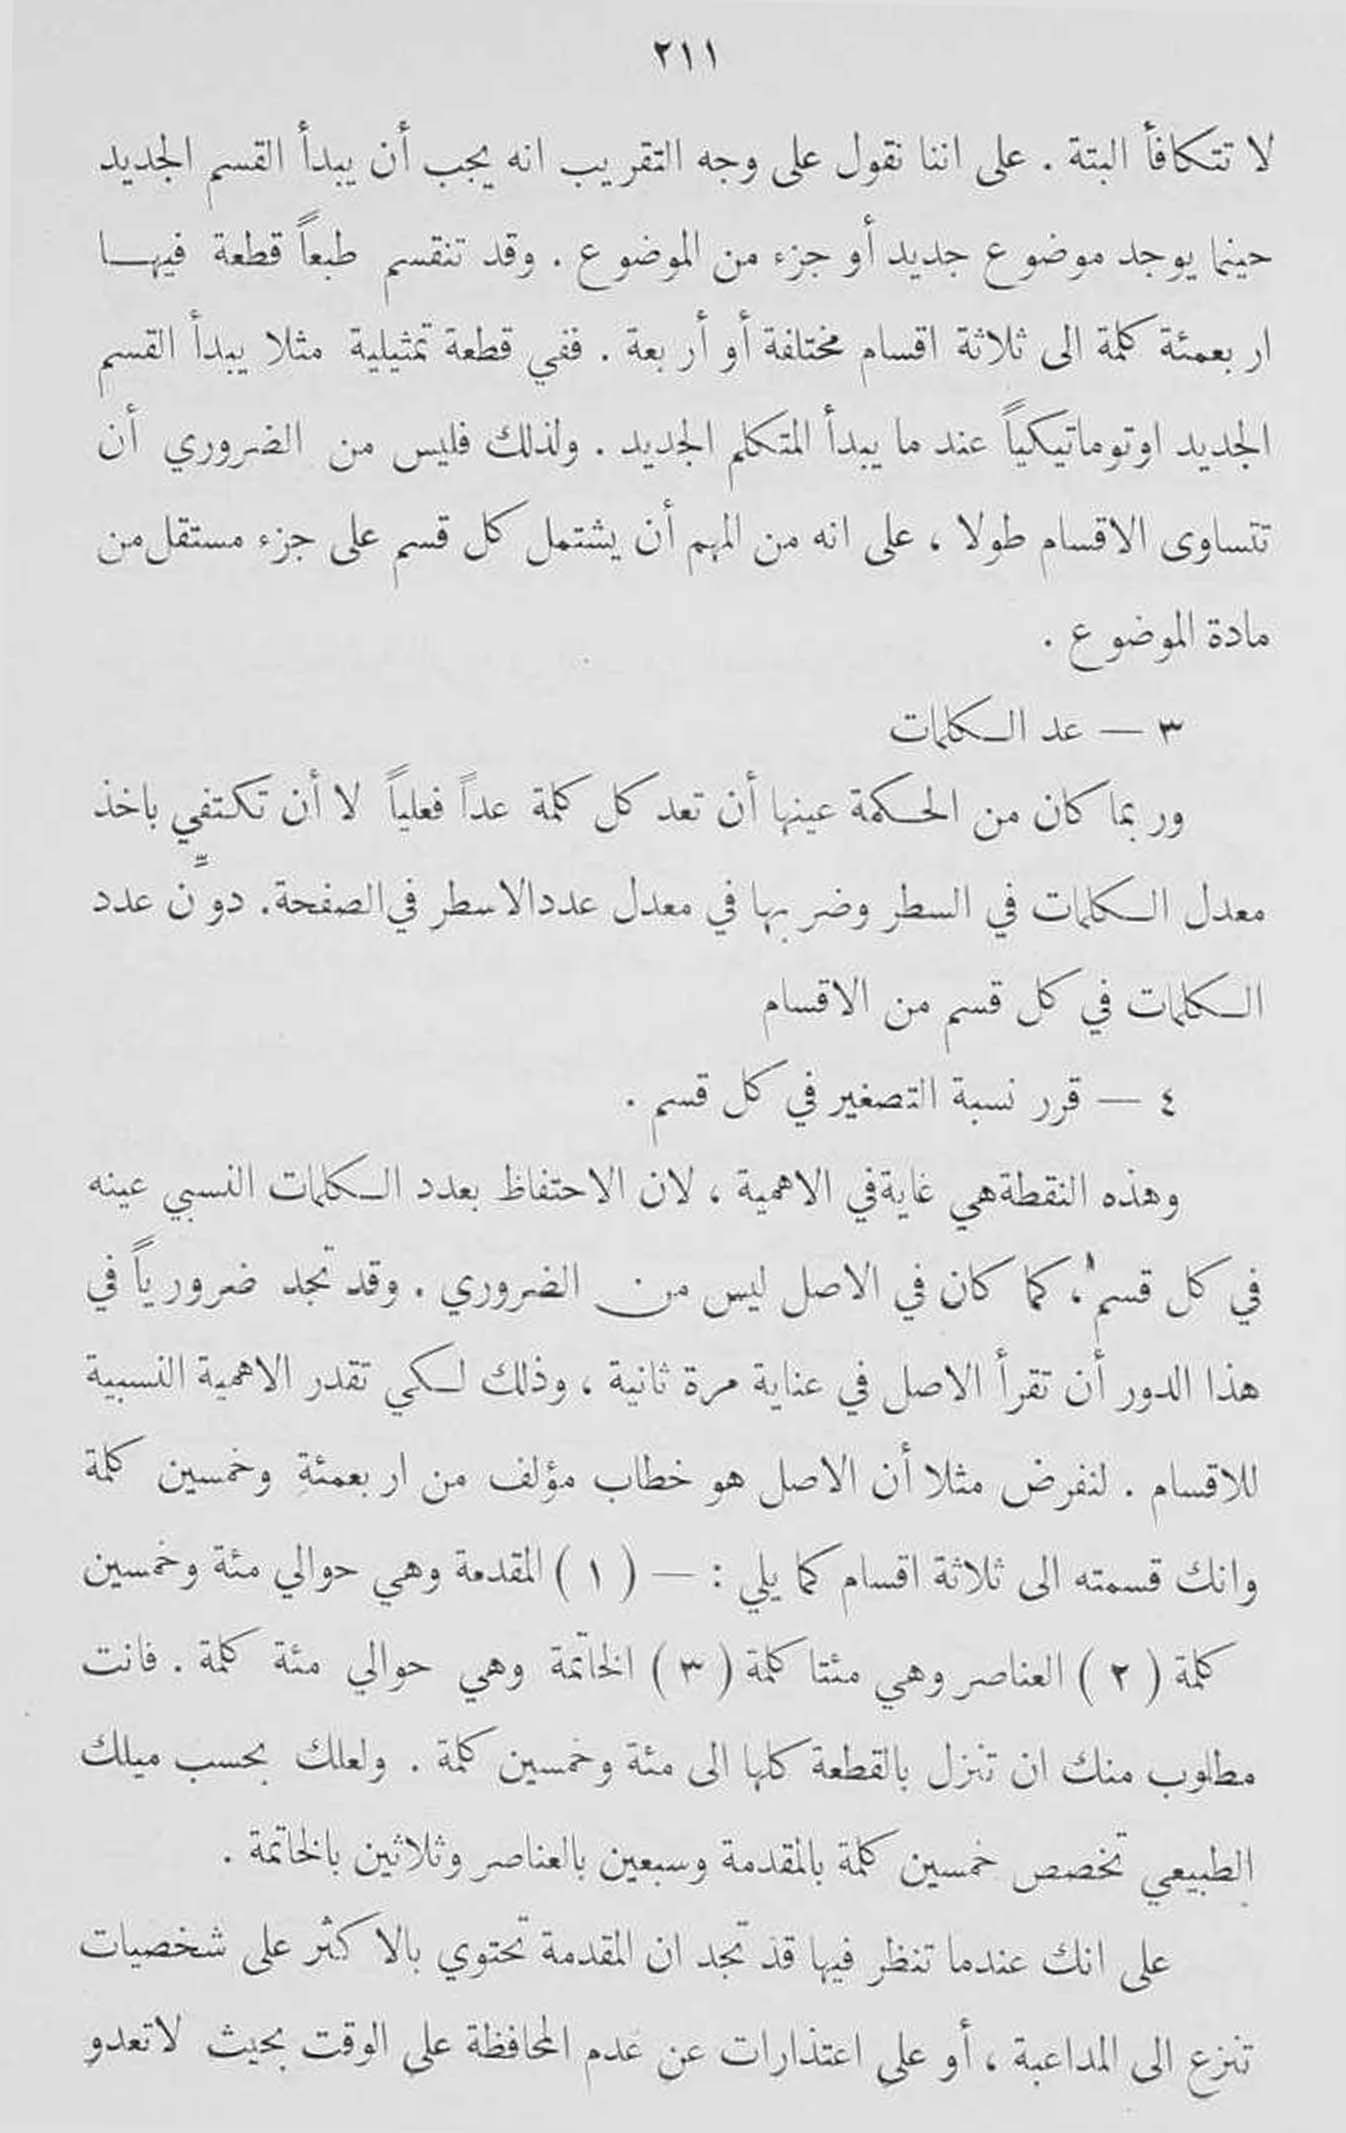 ٢١١
لا تتكافأ البتة . على اننا نقول على وجه التقريب انه يجب أن يبدأ القسم الجديد
حينما يوجد موضوع جديد أو جزء من الموضوع . وقد تنقسم طبعاً قطعة فيهـا
اربعمئة كلمة الى ثلاثة اقسام مختلفة أو أربعة . ففي قطعة تمثيلية مثلا يبدأ القسم
الجديد اوتوماتيكياً عند ما يبدأ المتكلم الجديد . ولذلك فليس من الضروري أن
تتساوى الاقسام طولا ، على انه من المهم أن يشتمل كل قسم على جزء مستقل من
مادة الموضوع .
٣ — عد الـكلمات
وربما كان من الحـكمة عينها أن تعد كل كلمة عداً فعلياً لا أن تكتفي باخذ
معدل الـكلمات في السطر وضربها في معدل عدد الاسطر في الصفحة . دوّن عدد
الـكلمات في كل قسم من الاقسام
٤ — قرر نسبة التصغير في كل قسم .
وهذه النقطة هي غاية في الاهمية ، لان الاحتفاظ بعدد الـكلمات النسبي عينه
في كل قسم ، كما كان في الاصل ليس من الضروري . وقد تجد ضرورياً في
هذا الدور أن تقرأ الاصل في عناية مرة ثانية ، وذلك لـكي تقدر الاهمية النسبية
للاقسام . لنفرض مثلا أن الاصل هو خطاب مؤلف من اربعمئة وخمسين كلمة
وانك قسمته الى ثلاثة اقسام كما يلي : — ( ١ ) المقدمة وهي حوالي مئة وخمسين
كلمة ( ٢ ) العناصر وهي مئتا كلمة ( ٣ ) الخاتمة وهي حوالي مئة كلمة . فانت
مطلوب منك ان تنزل بالقطعة كلها الى مئة وخمسين كلمة . ولعلك بحسب ميلك
الطبيعي تخصص خمسين كلمة بالمقدمة وسبعين بالعناصر وثلاثين بالخاتمة .
على انك عندما تنظر فيها قد تجد ان المقدمة تحتوي بالاكثر على شخصيات
تنزع الى المداعبة ، أو على اعتذارات عن عدم المحافظة على الوقت بحيث لا تعدو